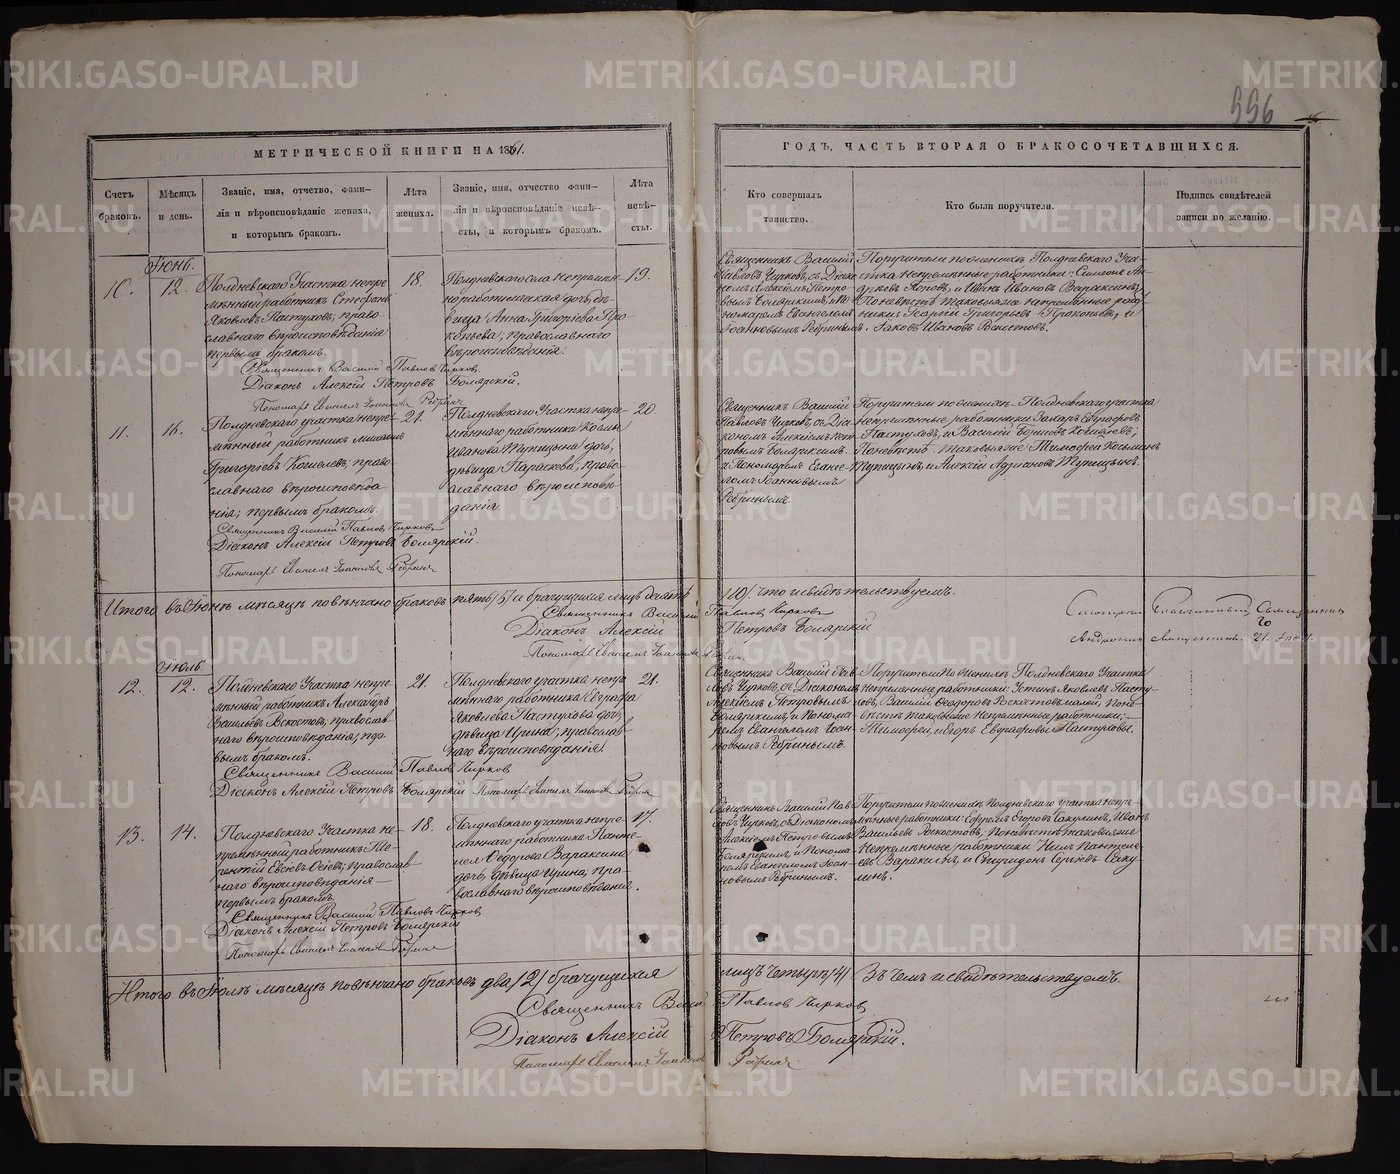 996
МЕТРИЧЕСКОЙ КНИГИ НА 1861.
ГОДЪ, ЧАСТЬ ВТОРАЯ О БРАКОСОЧЕТАВШИХСЯ.
Счетъ браковъ.
Мѣсяцъ и день.
Званіе, имя, отчество, фами-
лія и вѣроисповѣданіе жениха,
и которымъ бракомъ.
Лѣта жениха.
Званіе, имя, отчество фами-
лія и вѣроисповѣданіе невѣ-
сты, и которымъ бракомъ.
Лѣта
невѣ-
сты.
Кто совершалъ
таинство.
Кто были поручители.
Подпись свидѣтелей
записи по желанію.
Іюнь.
10. 12.
Полдневскаго Участка непре-
мѣнный работникъ Стефанъ
Яковлевъ Пастуховъ, право
славнаго вѣроисповѣданія
первымъ бракомъ.
18.
Полдневскаго села непремен-
но работническая дочь, дѣ-
вица Анна Григорьева Про-
копьева, православнаго
вѣроисповѣданія.
19.
Священникъ Василій
Павловъ Чирковъ, съ Діако-
номъ Алексіемъ Петро-
вымъ Боляркимъ, и По
номаремъ Евангеломъ
Іоанновымъ Ребринымъ.
Поручители по женихѣ Полдневскаго Уча-
стка непремѣнные работники: Симеонъ Ан-
дреевъ Поповъ, и Иванъ Ивановъ Вараксинъ;
По невѣстѣ таковыеже непремѣнные рабо
ники: Георгій Григорьевъ Прокопьевъ, и
Іаковъ Ивановъ Локостовъ.
Священникъ Василій Павловъ Чирковъ.
Діаконъ Алексій Петровъ Болярскій.
Пономарь Евангелъ Іоанновъ Ребринъ
11. 16.
Полдневскаго участка непре-
мѣнный работникъ Михаилъ
Григорьевъ Кошелевъ, право
славнаго вѣроисповѣда
нія; первымъ бракомъ.
21.
Полдневскаго Участка непре-
мѣннаго работника Козмы
Иванова Турицына дочь,
дѣвица Параскева, право
славнаго вѣроисповѣ
данія.
20.
Священникъ Василій
Павловъ Чирковъ, съ Діа
кономъ Алексіемъ Пет
ровымъ Болярскимъ.
и Пономаремъ Еванге-
ломъ Іоанновымъ
Ребринымъ.
Поручители по женихѣ Полдневскаго участка
непремѣнные работники Захаръ Евграфовъ
Пастуховъ, и Василій Кошелевъ;
По невѣстѣ таковыеже Тимофей Косьминъ
Турицынъ, и Алексій Адриановъ Турицынъ.
Священникъ Василій Павловъ Чирковъ
Діаконъ Алексій Петровъ Болярскій.
Пономарь Евангелъ Іоанновъ Ребринъ
Итого въ Іюнѣ мѣсяцѣ повѣнчано браковъ пять /5/ а брачущихся лицъ десять /10/. что и свидѣтельствуемъ.
Священникъ Василій Павловъ Чирковъ
Діаконъ Алексій Петровъ Болярскій
Пономарь Евангелъ Іоанновъ Ребринъ
Іюль.
12. 12.
Полдневскаго Участка непре-
мѣнный работникъ Александръ
Васильевъ Локостовъ, православ
наго вѣроисповѣданія; пер-
вымъ бракомъ.
21.
Полдневскаго участка непре
мѣннаго работника Евграфа
Яковлева Пастухова дочь,
дѣвица Ирина, православ-
наго вѣроисповѣданія.
21.
Священникъ Василій Пав
ловъ Чирковъ, съ Діакономъ
Алексіемъ Петровымъ
Болярскимъ, и Понома
ремъ Евангеломъ Іоан-
новымъ Ребринымъ.
Поручители по женихѣ Полдневскаго Участка
непременные работники: Устинъ Яковлевъ Пасту
ховъ, Василій Федоровъ Локостовъ малой, По не-
вѣстѣ таковыеже непремѣнные работники:
Тимофей, и Егоръ Евграфовы Пастуховы.
Священникъ Василій Павловъ Чирковъ
Діаконъ Алексій Петровъ Болярскій Пономарь Евангелъ Іоанновъ Ребринъ
13. 14.
Полдневскаго Участка не-
премѣнный работникъ Те-
рентій Евсѣевъ, православ-
наго вѣроисповѣданія
первымъ бракомъ.
18.
Полдневскаго участка непре-
мѣннаго работника Панте-
леи Федорова Вараксина
дочь, дѣвица Ирина, пра-
вославнаго вѣроисповѣданія.
17.
Священникъ Василій Пав
ловъ Чирковъ, съ Діакономъ
Алексіемъ Петровымъ
Болярскимъ, и Понома
ремъ Евангеломъ Іоан-
новымъ Ребринымъ.
Поручители по женихѣ Полдневскаго участка непре-
мѣнные работники: Ефремъ Егоровъ Сакулинъ, Иванъ
Васильевъ Локостовъ, По невѣстѣ таковыеже
Непремѣнные работники Нилъ Пантеле
евъ Вараксинъ, и Спиридонъ Сергіевъ Саку
линъ.
Священникъ Василій Павловъ Чирковъ
Діаконъ Алексій Петровъ Болярскій
Пономарь Евангелъ Іоанновъ Ребринъ
Итого въ Іюлѣ мѣсяцѣ повѣнчано браковъ два /2/ брачущихся лицъ четыре /4/ Въ чемъ и свидѣтельствуемъ.
Священникъ Василій Павловъ Чирковъ
Діаконъ Алексій Петровъ Болярскій.
Пономарь Евангелъ Іоанновъ Ребринъ
METRIKI.GASO-URAL.RU